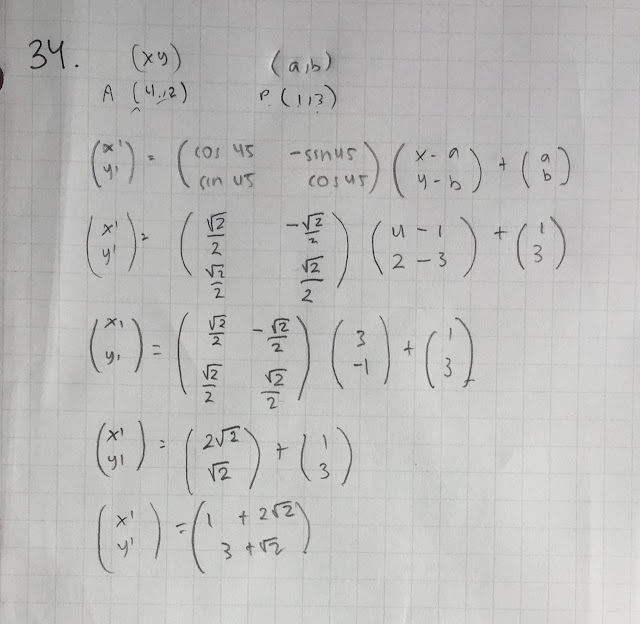 34. (x y) (a,b)
A (4,2) P. (1,3)
(x' y') = (cos 45 -sin 45 sin 45 cos 45) (x - a y - b) + (a b)
(x' y') = (√2/2 -√2/2 √2/2 √2/2) (4 - 1 2 - 3) + (1 3)
(x' y') = (√2/2 -√2/2 √2/2 √2/2) (3 -1) + (1 3)
(x' y') = (2√2 √2) + (1 3)
(x' y') = (1 + 2√2 3 + √2)